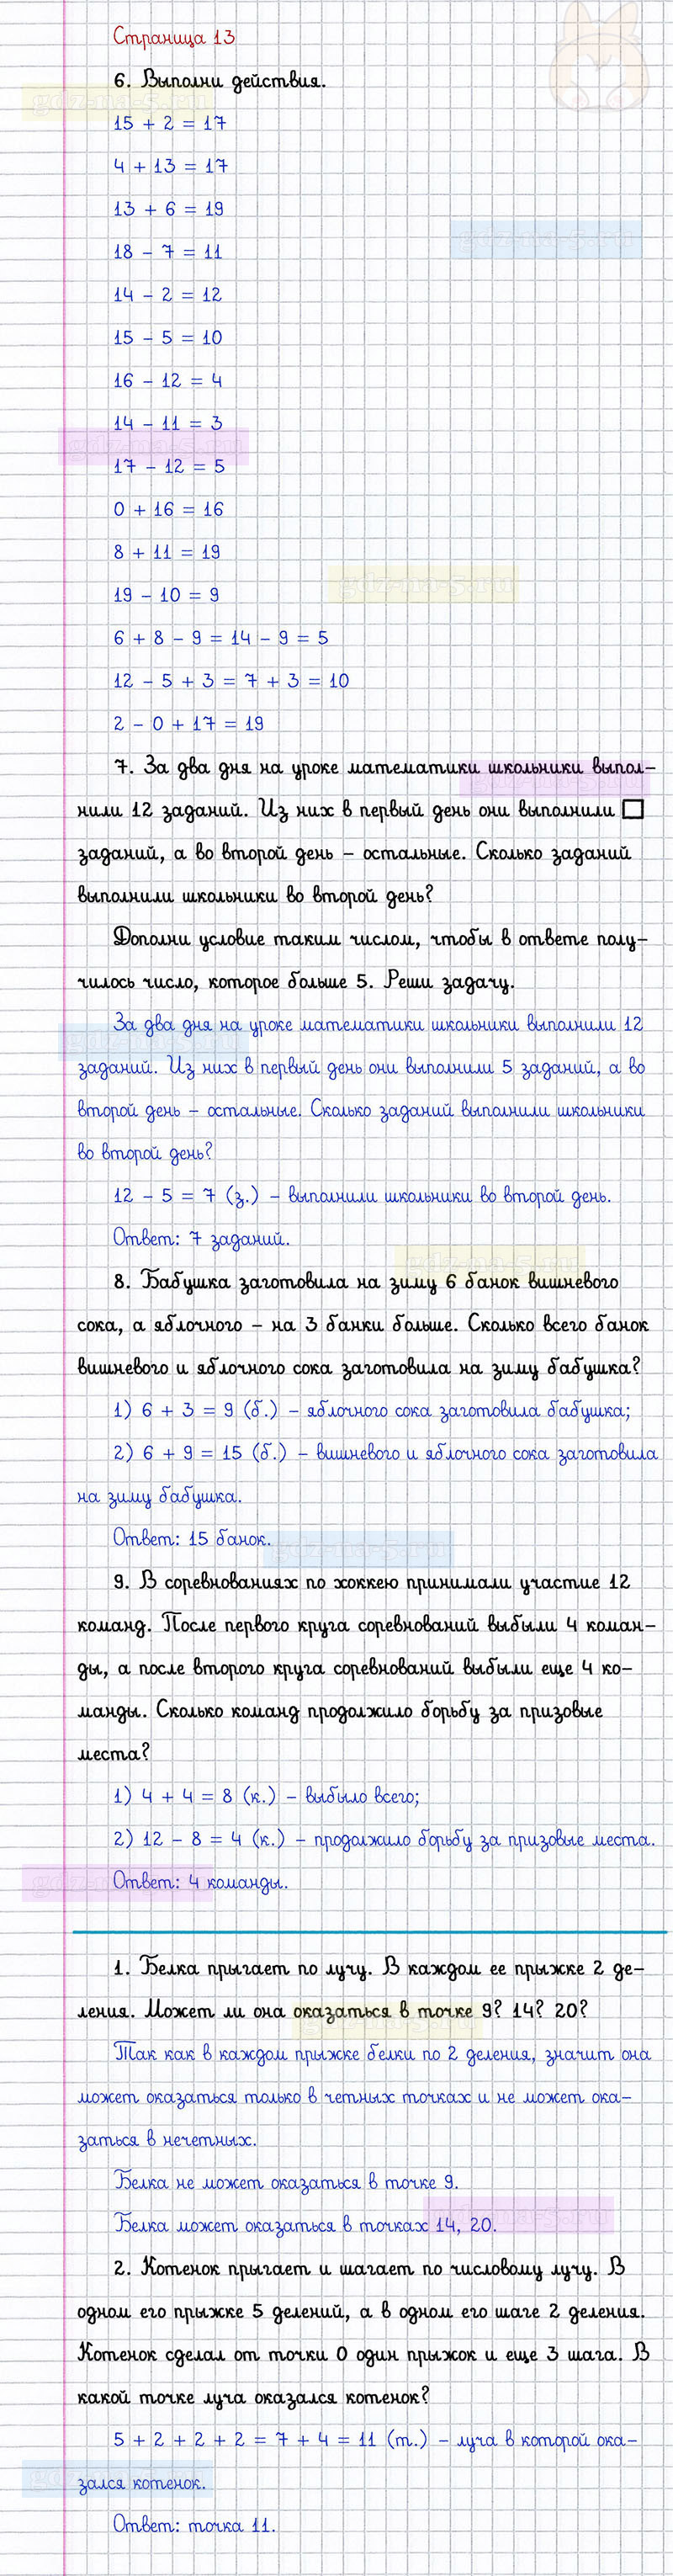 Страница 13
6. Выполни действия.
gdz-na-5.ru
15 + 2 = 17
4 + 13 = 17
13 + 6 = 19
gdz-na-5.ru
18 - 7 = 11
14 - 2 = 12
15 - 5 = 10
16 - 12 = 4
14 - 11 = 3
gdz-na-5.ru
17 - 12 = 5
0 + 16 = 16
8 + 11 = 19
gdz-na-5.ru
19 - 10 = 9
6 + 8 - 9 = 14 - 9 = 5
12 - 5 + 3 = 7 + 3 = 10
2 - 0 + 17 = 19
7. За два дня на уроке математики школьники выпол-
gdz-na-5.ru
нили 12 заданий. Из них в первый день они выполнили □
заданий, а во второй день – остальные. Сколько заданий
выполнили школьники во второй день?
Дополни условие таким числом, чтобы в ответе полу-
чилось число, которое больше 5. Реши задачу.
За два дня на уроке математики школьники выполнили 12
gdz-na-5.ru
заданий. Из них в первый день они выполнили 5 заданий, а во
второй день – остальные. Сколько заданий выполнили школьники
во второй день?
12 - 5 = 7 (з.) – выполнили школьники во второй день.
Ответ: 7 заданий.
gdz-na-5.ru
8. Бабушка заготовила на зиму 6 банок вишневого
сока, а яблочного – на 3 банки больше. Сколько всего банок
вишневого и яблочного сока заготовила на зиму бабушка?
1) 6 + 3 = 9 (б.) – яблочного сока заготовила бабушка;
2) 6 + 9 = 15 (б.) – вишневого и яблочного сока заготовила
на зиму бабушка.
Ответ: 15 банок.
gdz-na-5.ru
9. В соревнованиях по хоккею принимали участие 12
команд. После первого круга соревнований выбыли 4 коман-
ды, а после второго круга соревнований выбыли еще 4 ко-
манды. Сколько команд продолжило борьбу за призовые
места?
1) 4 + 4 = 8 (к.) – выбыло всего;
2) 12 - 8 = 4 (к.) – продолжило борьбу за призовые места.
Ответ: 4 команды.
gdz-na-5.ru
1. Белка прыгает по лучу. В каждом ее прыжке 2 де-
ления. Может ли она оказаться в точке 9? 14? 20?
gdz-na-5.ru
Так как в каждом прыжке белки по 2 деления, значит она
может оказаться только в четных точках и не может ока-
заться в нечетных.
Белка не может оказаться в точке 9.
gdz-na-5.ru
Белка может оказаться в точках 14, 20.
2. Котенок прыгает и шагает по числовому лучу. В
одном его прыжке 5 делений, а в одном его шаге 2 деления.
Котенок сделал от точки 0 один прыжок и еще 3 шага. В
какой точке луча оказался котенок?
5 + 2 + 2 + 2 = 7 + 4 = 11 (т.) – луча в которой ока-
gdz-na-5.ru
зался котенок.
Ответ: точка 11.